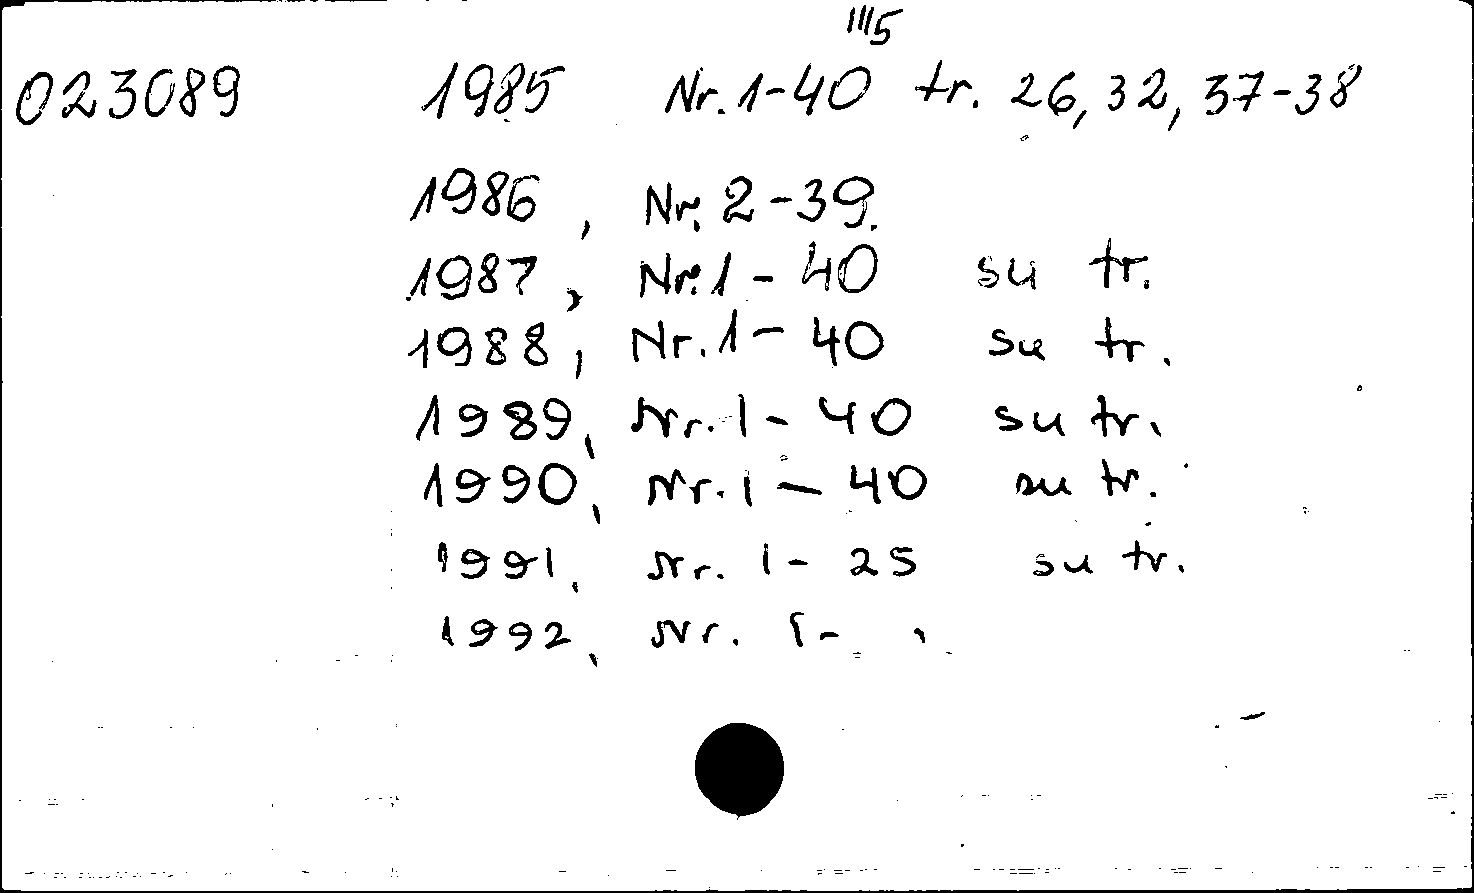 023089 1985 Nr. 1-40 tr. 26, 32, 37-38
1986, Nr. 2-39.
1987, Nr. 1-40 su tr.
1988, Nr. 1-40 su tr.
1989, Nr. 1-40 su tr.
1990, Nr. 1-40 su tr.
1991, Nr. 1-25 su tr.
1992, Nr. 1-